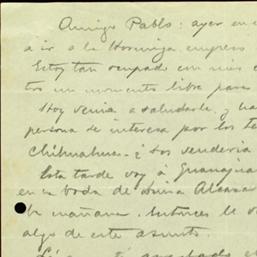 Amigo Pablo: ayer en
a ir a la Hormiga empres
Estoy tan ocupado con mis
tos un momento libre para
Hoy venía a saludarle, y ha
persona se interesa por los te
Chihuahua. ¿Los vendería
Esta tarde voy á Guanajua
en la boda de Alcaza
mañana. Entonces le
algo de este asunto.